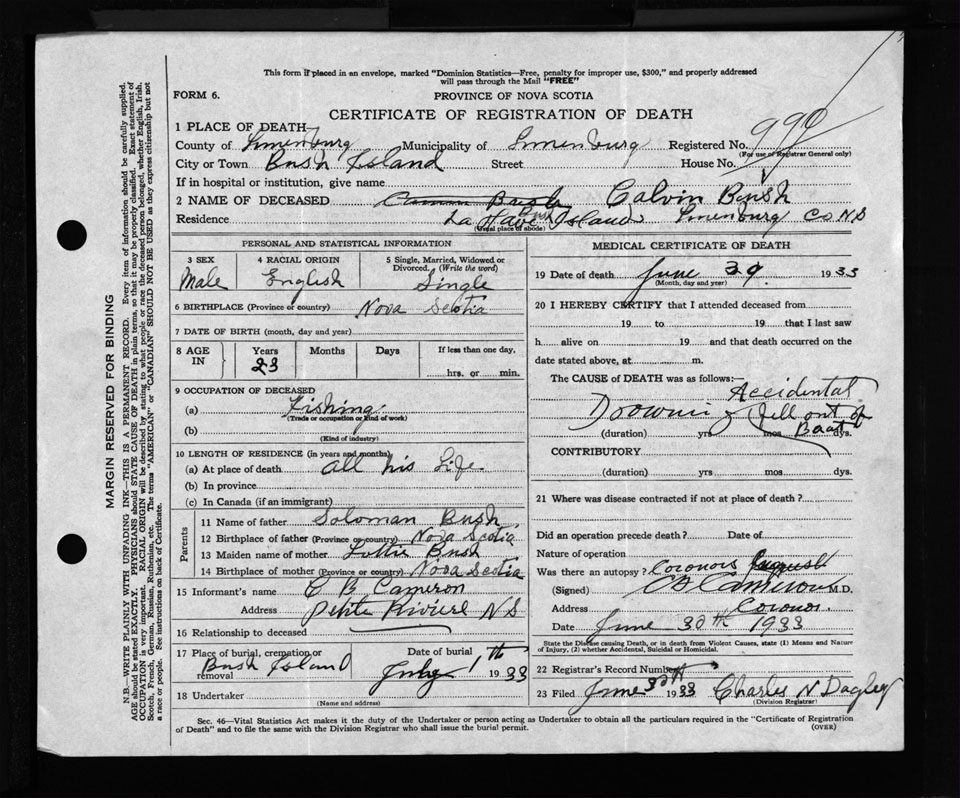 This form if placed in an envelope, marked "Dominion Statistics—Free, penalty for improper use, $300," and properly addressed
will pass through the Mail "FREE"
FORM 6.
PROVINCE OF NOVA SCOTIA
CERTIFICATE OF REGISTRATION OF DEATH
1 PLACE OF DEATH—
County of Lunenburg Municipality of Lunenburg Registered No. 990
(For use of Registrar General only)
City or Town Bush Island Street House No.
If in hospital or institution, give name
2 NAME OF DECEASED Calvin Bush
Residence La Have Bush Islands Lunenburg Co N S
(Usual place of abode)
PERSONAL AND STATISTICAL INFORMATION
3 SEX
Male
4 RACIAL ORIGIN
English
5 Single, Married, Widowed or Divorced. (Write the word)
Single
6 BIRTHPLACE (Province or country) Nova Scotia
7 DATE OF BIRTH (month, day and year)
8 AGE IN
Years Months Days If less than one day,
23 hrs. or min.
9 OCCUPATION OF DECEASED
(a) Fishing
(Trade or occupation or kind of work)
(b)
(Kind of industry)
10 LENGTH OF RESIDENCE (in years and months)
(a) At place of death all his Life
(b) In province
(c) In Canada (if an immigrant)
Parents
11 Name of father Soloman Bush
12 Birthplace of father (Province or country) Nova Scotia
13 Maiden name of mother Lottie Bush
14 Birthplace of mother (Province or country) Nova Scotia
15 Informant's name C B Cameron
Address Petite Riviere N S
16 Relationship to deceased
17 Place of burial, cremation or removal Bush Island
Date of burial
July 1th 1933
18 Undertaker
(Name and address)
MEDICAL CERTIFICATE OF DEATH
19 Date of death June 29 1933
(Month, day and year)
20 I HEREBY CERTIFY that I attended deceased from
19 to 19 that I last saw
h alive on 19 and that death occurred on the
date stated above, at m.
The CAUSE of DEATH was as follows:— Accidental
Drowning fell out of
Boat
(duration) yrs mos dys.
CONTRIBUTORY
(duration) yrs mos dys.
21 Where was disease contracted if not at place of death?
Did an operation precede death? Date of
Nature of operation
Was there an autopsy? Coronors
(Signed) C B Cameron M.D.
Address Coronor.
Date June 30th 1933
State the Disease causing Death, or in death from Violent Causes, state (1) Means and Nature of Injury, (2) whether Accidental, Suicidal or Homicidal.
22 Registrar's Record Number
23 Filed June 30th 1933 Charles N Dagley
(Division Registrar)
Sec. 46—Vital Statistics Act makes it the duty of the Undertaker or person acting as Undertaker to obtain all the particulars required in the "Certificate of Registration
of Death" and to file the same with the Division Registrar who shall issue the burial permit.
(OVER)
MARGIN RESERVED FOR BINDING
N.B.—WRITE PLAINLY WITH UNFADING INK—THIS IS A PERMANENT RECORD. Every item of information should be carefully supplied.
AGE should be stated EXACTLY. PHYSICIANS should STATE CAUSE OF DEATH in plain terms, so that it may be properly classified. Exact statement of
OCCUPATION is very important. RACIAL ORIGIN will be described by stating to what people or race the deceased person belonged, whether English, Irish,
Scotch, French, German, Russian, Ruthenian, etc. The terms "AMERICAN" or "CANADIAN" SHOULD NOT BE USED as they express citizenship but not
a race or people. See instructions on back of Certificate.